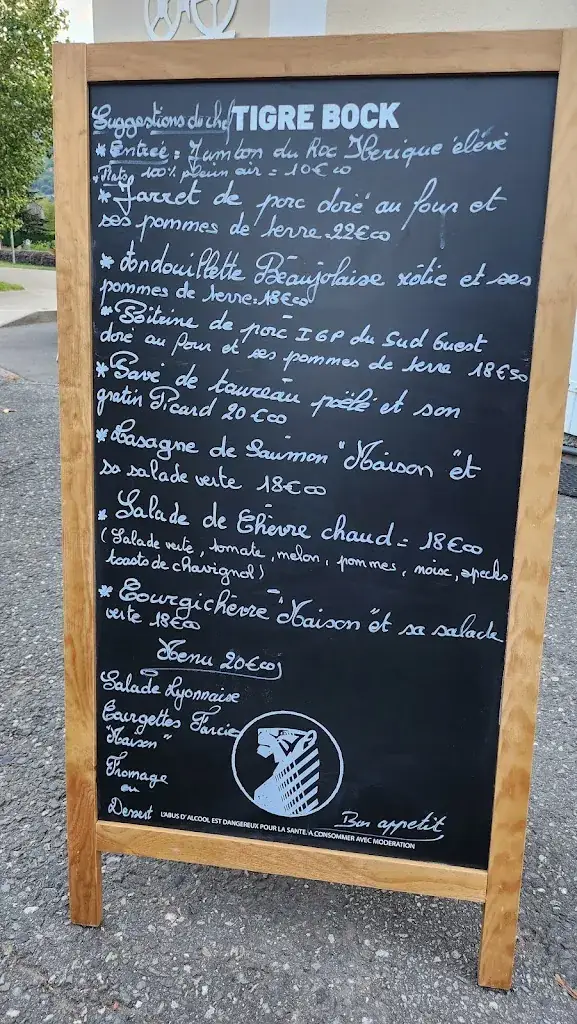 Suggestions du chef TIGRE BOCK
* Entrée : Jambon du Roc Iberique élévé
* Plats 100% plein air = 10€00
* Jarret de porc doré au four et
ses pommes de terre 22€00
* Andouillette Beaujolaise rôtie et ses
pommes de terre = 18€00
* Poitrine de porc IGP du Sud Ouest
doré au four et ses pommes de terre 18€50
* Pavé de taureau poêlé et son
gratin Picard 20€00
* Lasagne de Saumon "Maison" et
sa salade verte 18€00
* Salade de Chèvre chaud = 18€00
(Salade verte, tomate, melon, pommes, noix, specks
toasts de chavignol)
* Courgichèvre "Maison" et sa salade
verte 18€00
Menu 20€00
Salade Lyonnaise
Courgettes Farcie
"Maison"
Fromage
ou
Dessert
Bon appetit
L'ABUS D'ALCOOL EST DANGEREUX POUR LA SANTE. A CONSOMMER AVEC MODERATION